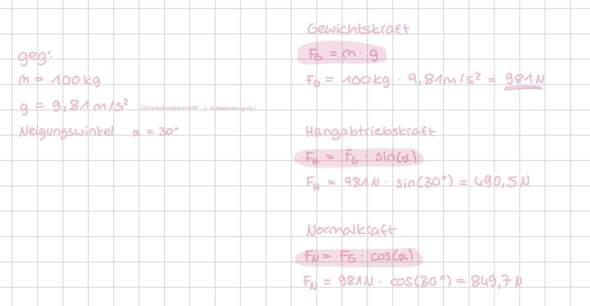 geg:
m = 100 kg
g = 9,81 m/s²
Neigungswinkel α = 30°
Gewichtskraft
F_G = m · g
F_G = 100 kg · 9,81 m/s² = 981 N
Hangabtriebskraft
F_H = F_G · sin(α)
F_H = 981 N · sin(30°) = 490,5 N
Normalkraft
F_N = F_G · cos(α)
F_N = 981 N · cos(30°) = 849,7 N